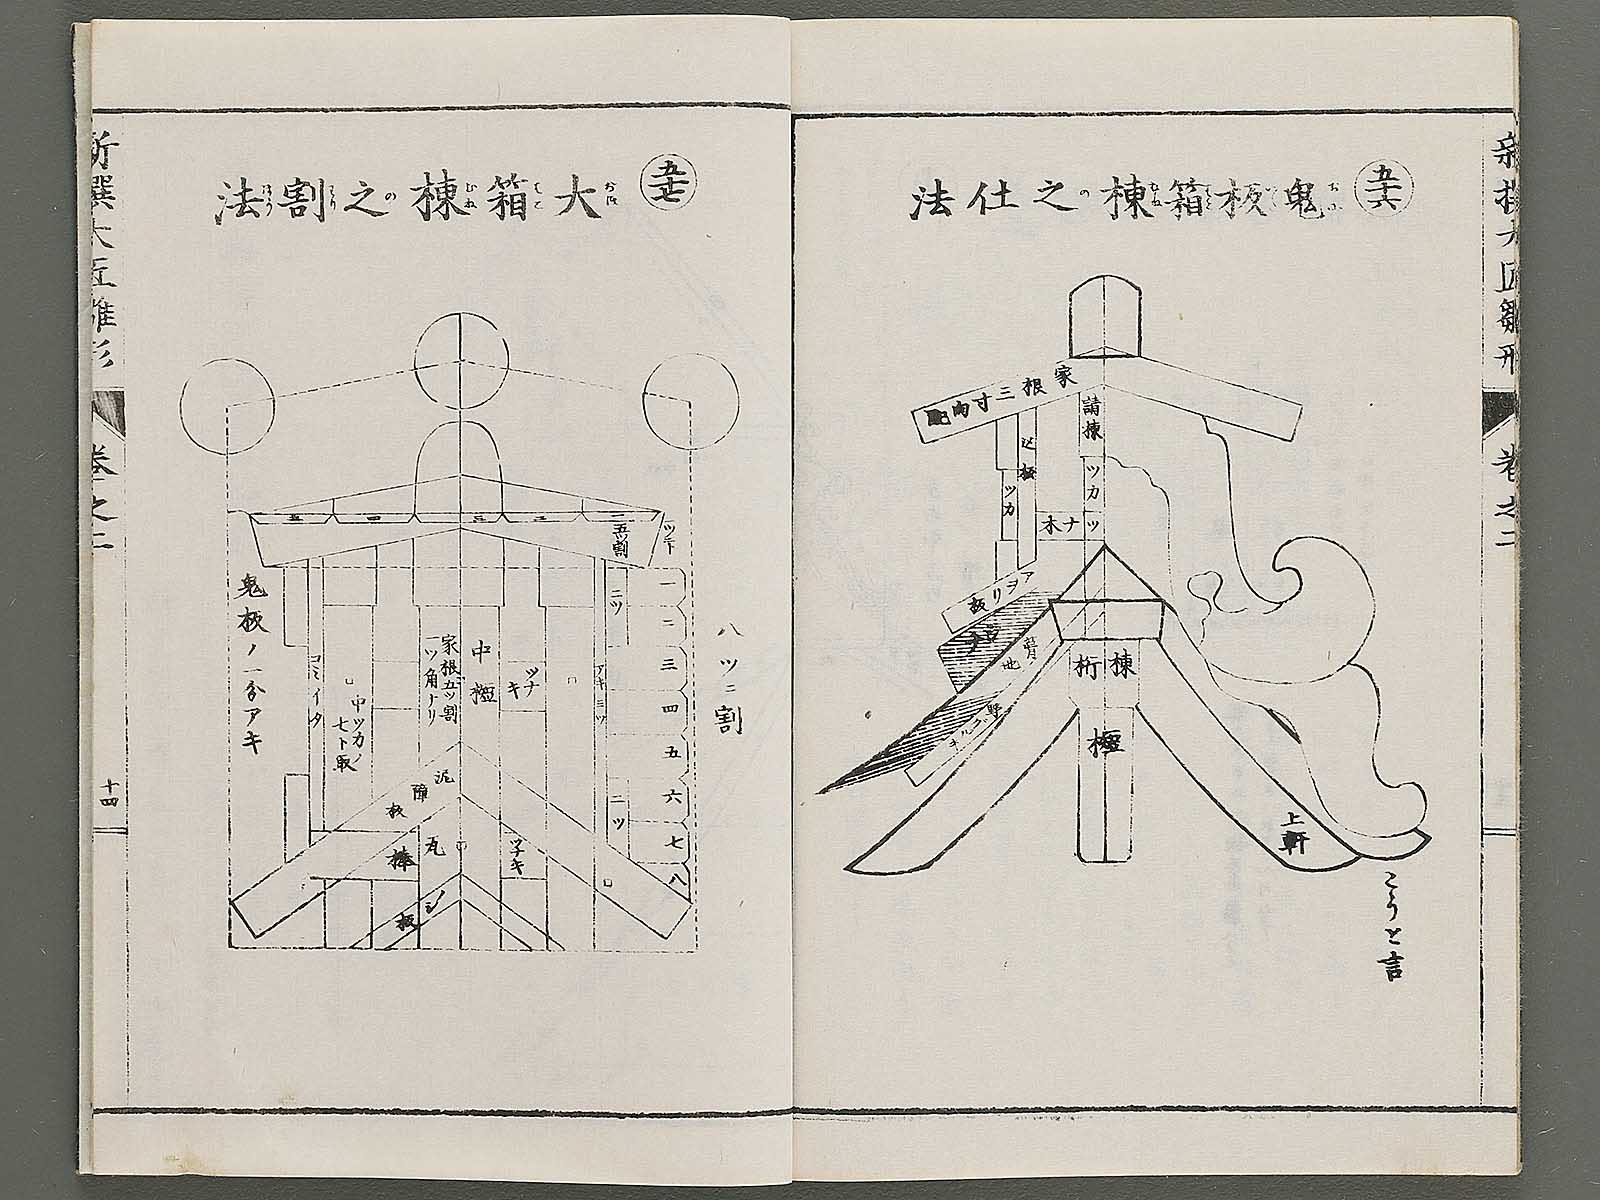 新撰大匠雛形
巻之二
五十六
鬼板箱棟之仕法
家根三寸内配
請棟
ツカ
込極
ツカ
ツナ木
アヲリ板
地
棟桁
極
上軒
こうと言
五十七
大箱棟之割法
おほはこむねのわりほう
一 二 三 四 五
五ツ割
鬼板ノ一分アキ
コミイタ
中ツカノ
七ト取
家根五ツ割
一ツ角ナリ
中極
ツナキ
二ツ
二ツ
八ツニ割
一
二
三
四
五
六
七
八
泥障板
瓦
棒
ツナキ
板
新撰大匠雛形
巻之二
十四